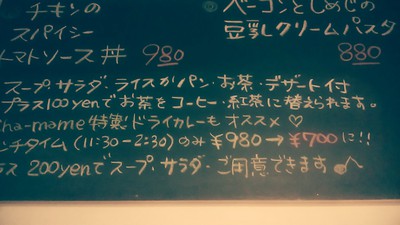 チキンの
スパイシー
トマトソース丼 980
ベーコンとしめじの
豆乳クリームパスタ
880
スープ・サラダ・ライスかパン・お茶・デザート付
プラス100yenでお茶をコーヒー・紅茶に替えられます。
cha-mame特製ドライカレーもオススメ♡
ンチタイム(11:30-2:30)のみ¥980→¥700に!!
ラス 200yenでスープ・サラダ・ご用意できます。